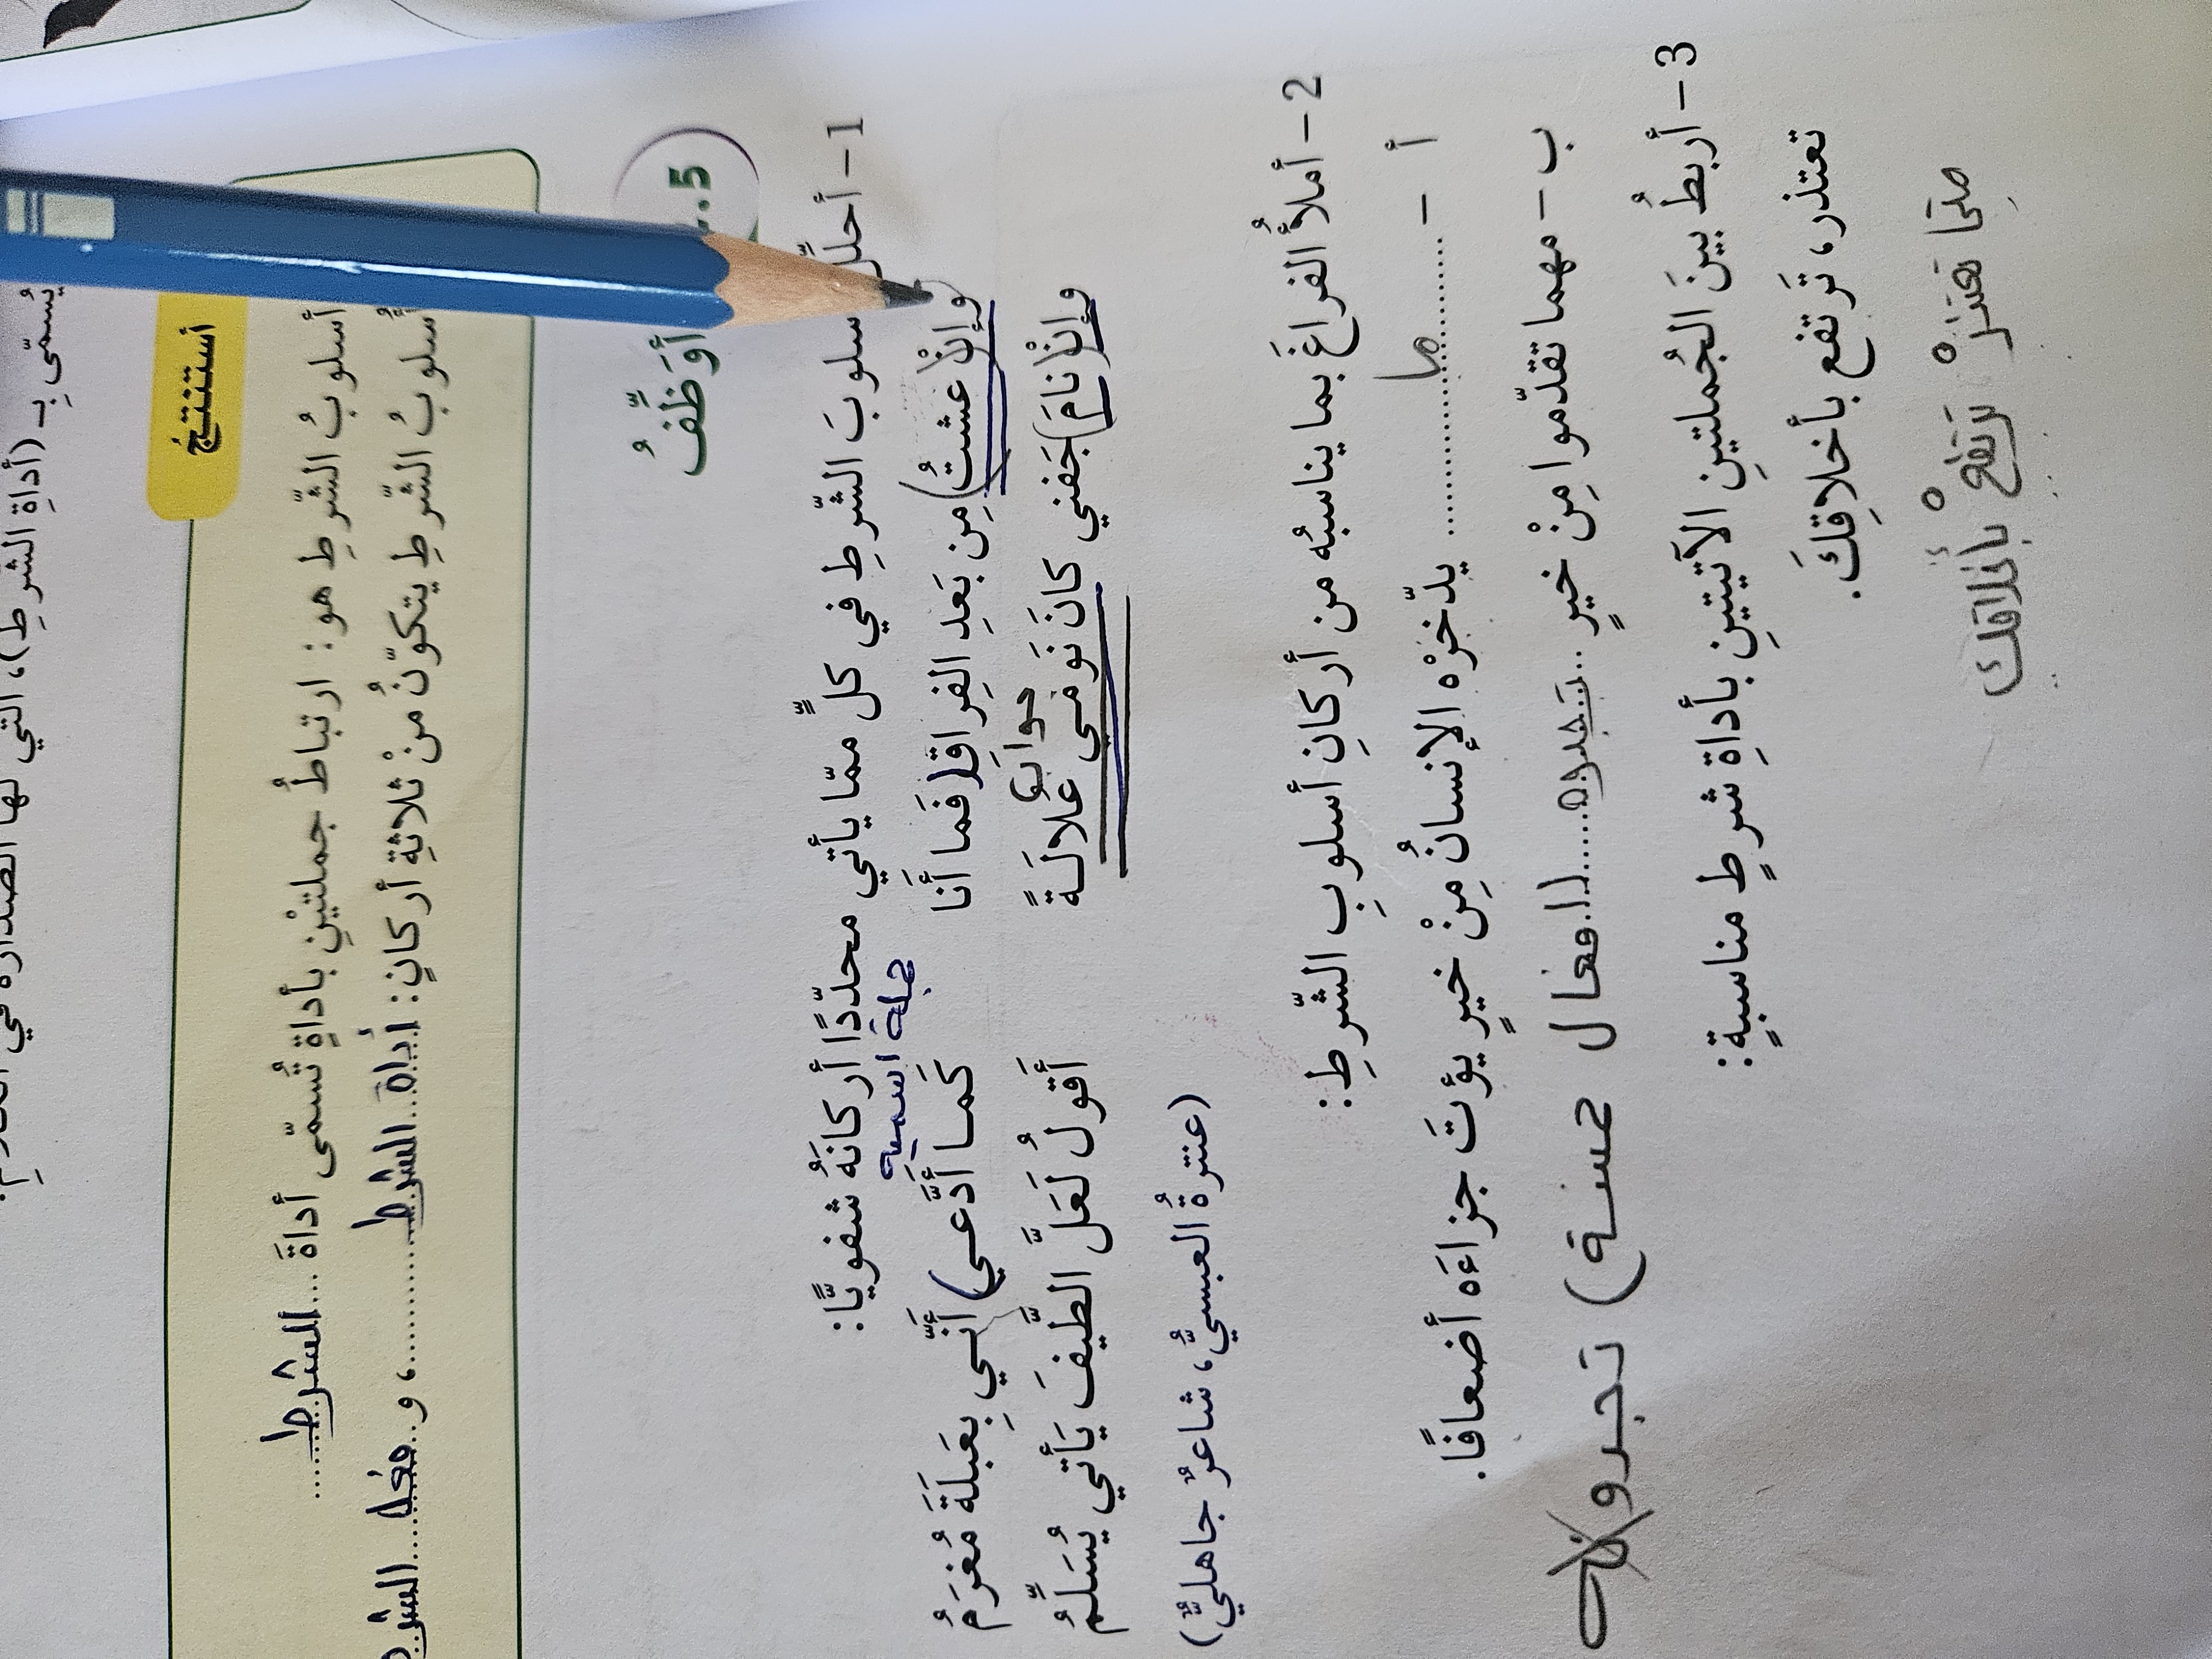 يُسمّى بِـ (أداةِ الشرطِ)، التي لها الصدارة في
أستنتجُ
أسلوبُ الشّرطِ هو: ارتباطُ جملتيْنِ بأداةٍ تُسمّى أداةَ ...الشرط......
أسلوبُ الشّرطِ يتكوّنُ مِنْ ثلاثةِ أركانٍ: أداة الشرط............، و...فعل الشرط
أُوَظِّفُ 5.
1- أحلّل أسلوبَ الشّرطِ في كلٍّ ممّا يأتي محدّدًا أركانَهُ شفويًّا:
جملة اسمية
وإنْ عشتُ) مِن بَعَدِ الفِراقِ (فَما أَنا كَما أَدَّعي) أَنّي بِعَبلَةَ مُغرَمُ
جوابو
وإنْ نامَ) جَفني كانَ نَومي عَلالَةً أَقولُ لَعَلَّ الطَّيفَ يَأتي يُسَلِّمُ
(عنترةُ العبسيُّ، شاعرٌ جاهليٌّ)
2- أملأُ الفراغَ بما يناسبُه من أركانِ أسلوبِ الشّرطِ:
أ - ........ما........ يدّخرْه الإنسانُ مِنْ خيرٍ يؤتَ جزاءَه أضعافًا.
ب- مهما تقدّموا مِنْ خيرٍ ...تجدوه......(افعال حسنة) تجدو
3- أربطُ بينَ الجُملتينِ الآتيتينِ بأداةِ شرطٍ مناسبةٍ:
تعتذر، تَرتفع بأخلاقِكَ.
متى تعتذرْ ترتفعْ بأخلاقك